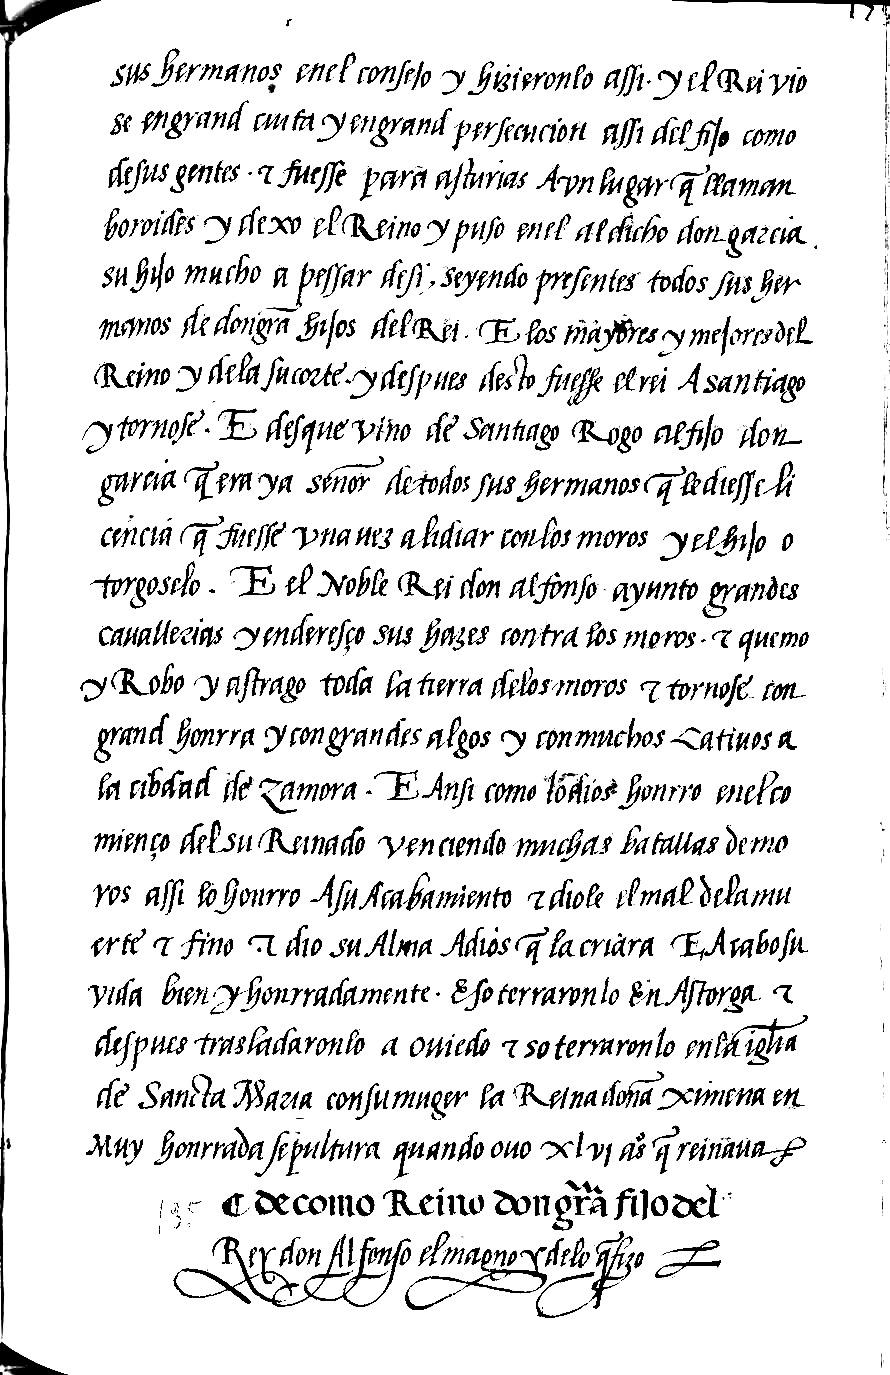 sus hermanos enel consejo y hizieronlo assi. y el Rei vio
se engrand cuita y engrand persecucion assi del fijo como
desus gentes. τ fuesse para asturias A vn lugar q̃ llaman
boroides y dexo el Reino y puso enel al dicho don garcia.
su hijo mucho a pessar desi, seyendo presentes todos sus her
manos de don gra᷉ hijos del Rei. E los mayores y mejores del
Reino y dela su corte. y despues desto fuesse el rei A santiago
y tornose. E desque vino de Santiago Rogo al fijo don
garcia q̃ era ya señor de todos sus hermanos q̃ le diesse li
cencia q̃ fuesse vna uez a lidiar con los moros y el hijo o
torgoselo. E el Noble Rei don alfonso ayunto grandes
cauallerias y enderesço sus hazes contra los moros. τ quemo
y Robo y astrago toda la tierra delos moros τ tornose con
grand honrra y con grandes algos y con muchos Catiuos a
la cibdad de Zamora. E Ansi como lo dios honrro enel co
mienço del su Reinado venciendo muchas batallas de mo
ros assi lo honrro A su Acabamiento τ diole el mal dela mu
erte τ fino τ dio su Alma A dios q̃ la criara E Acabo su
vida bien y honrradamente. & soterraronlo En Astorga τ
despues trasladaronlo a ouiedo τ soterraronlo enla igl̃ia
de Sancta Maria con su muger la Reina doña Ximena en
Muy honrrada sepultura quando ouo xlvj as̃ q̃ reinaua
135 ¶ de como Reino don gr̃a fijo del
Rey don Alfonso el magno y delo q̃ fizo